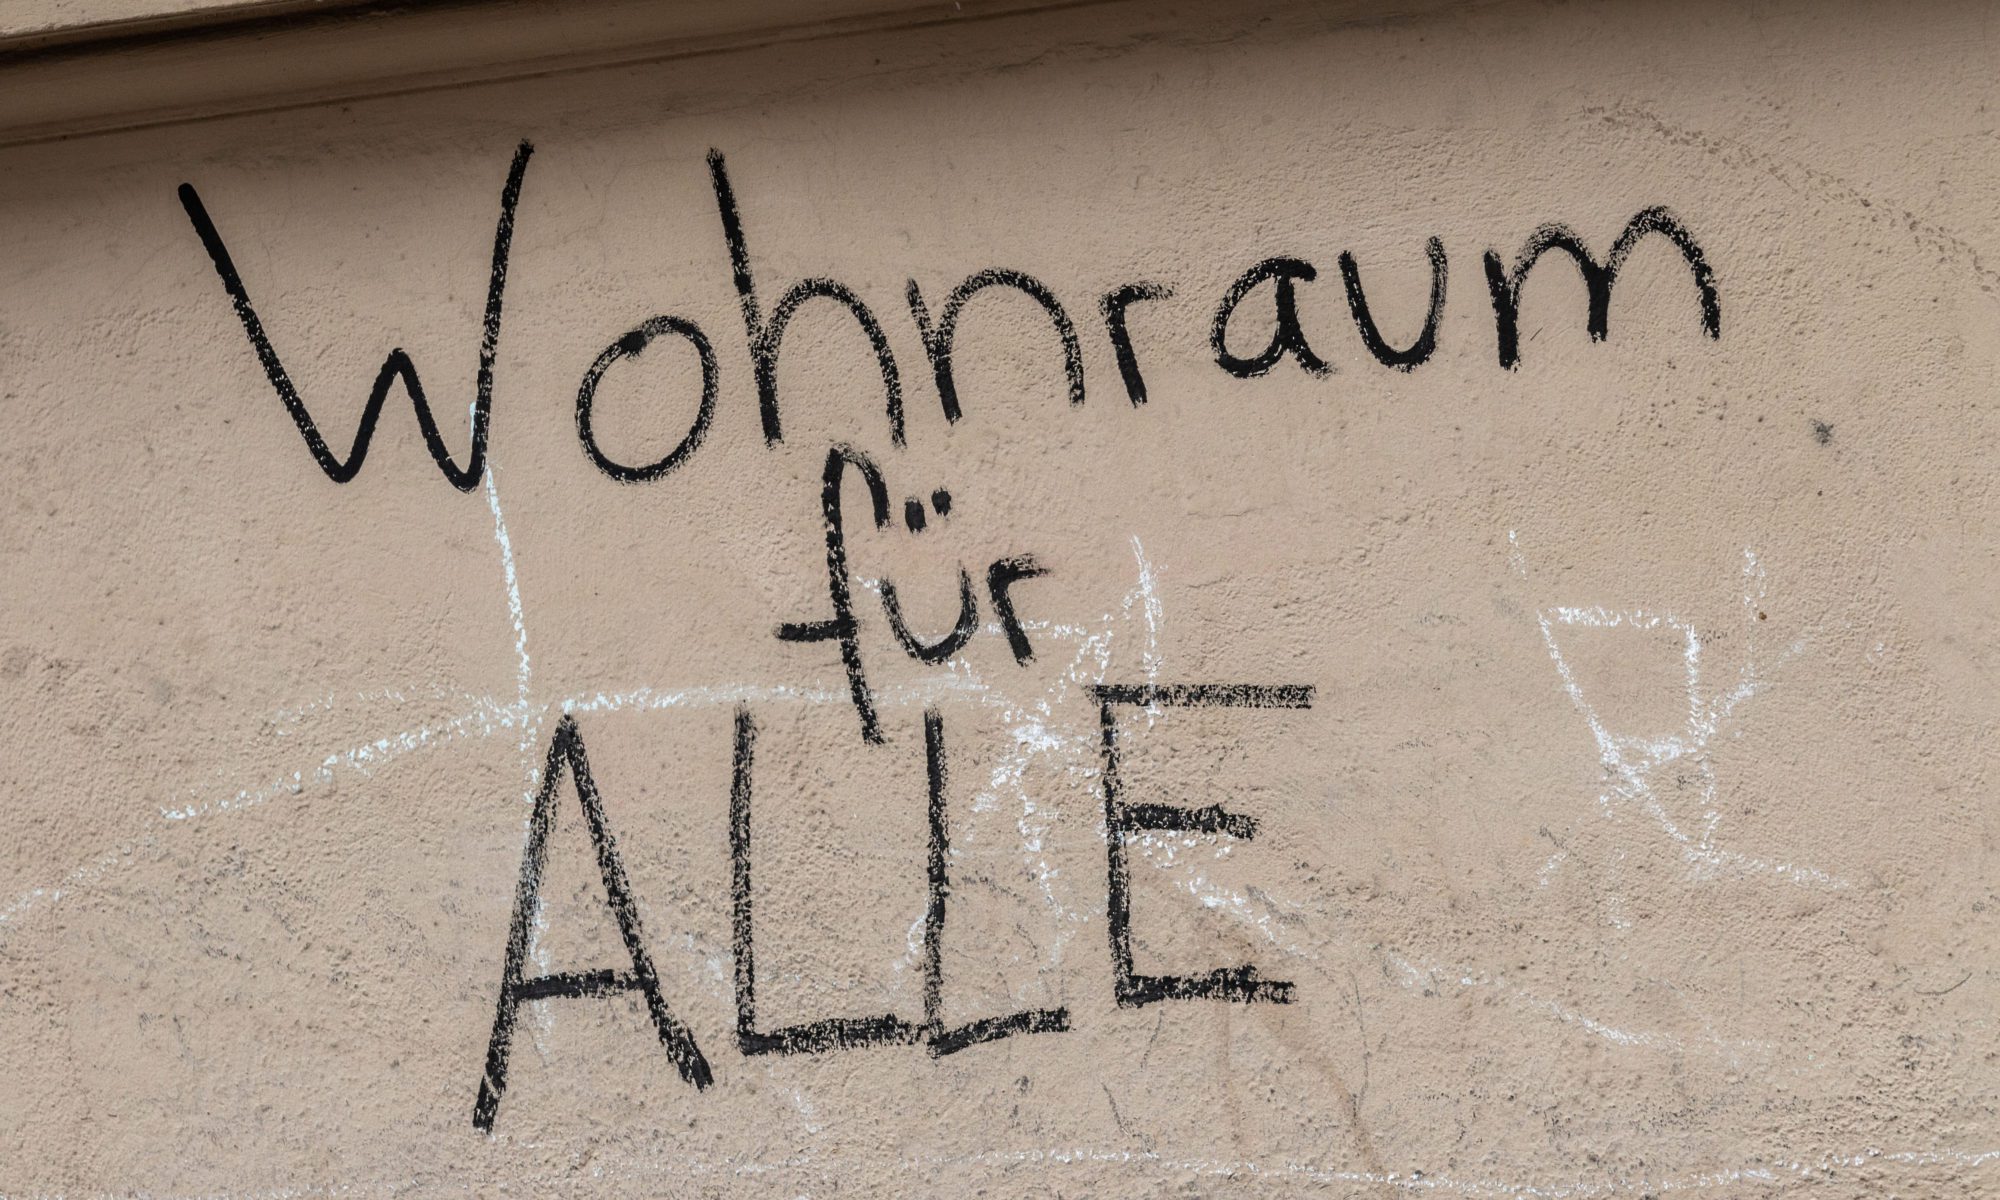 Wohnraum
für
ALLE